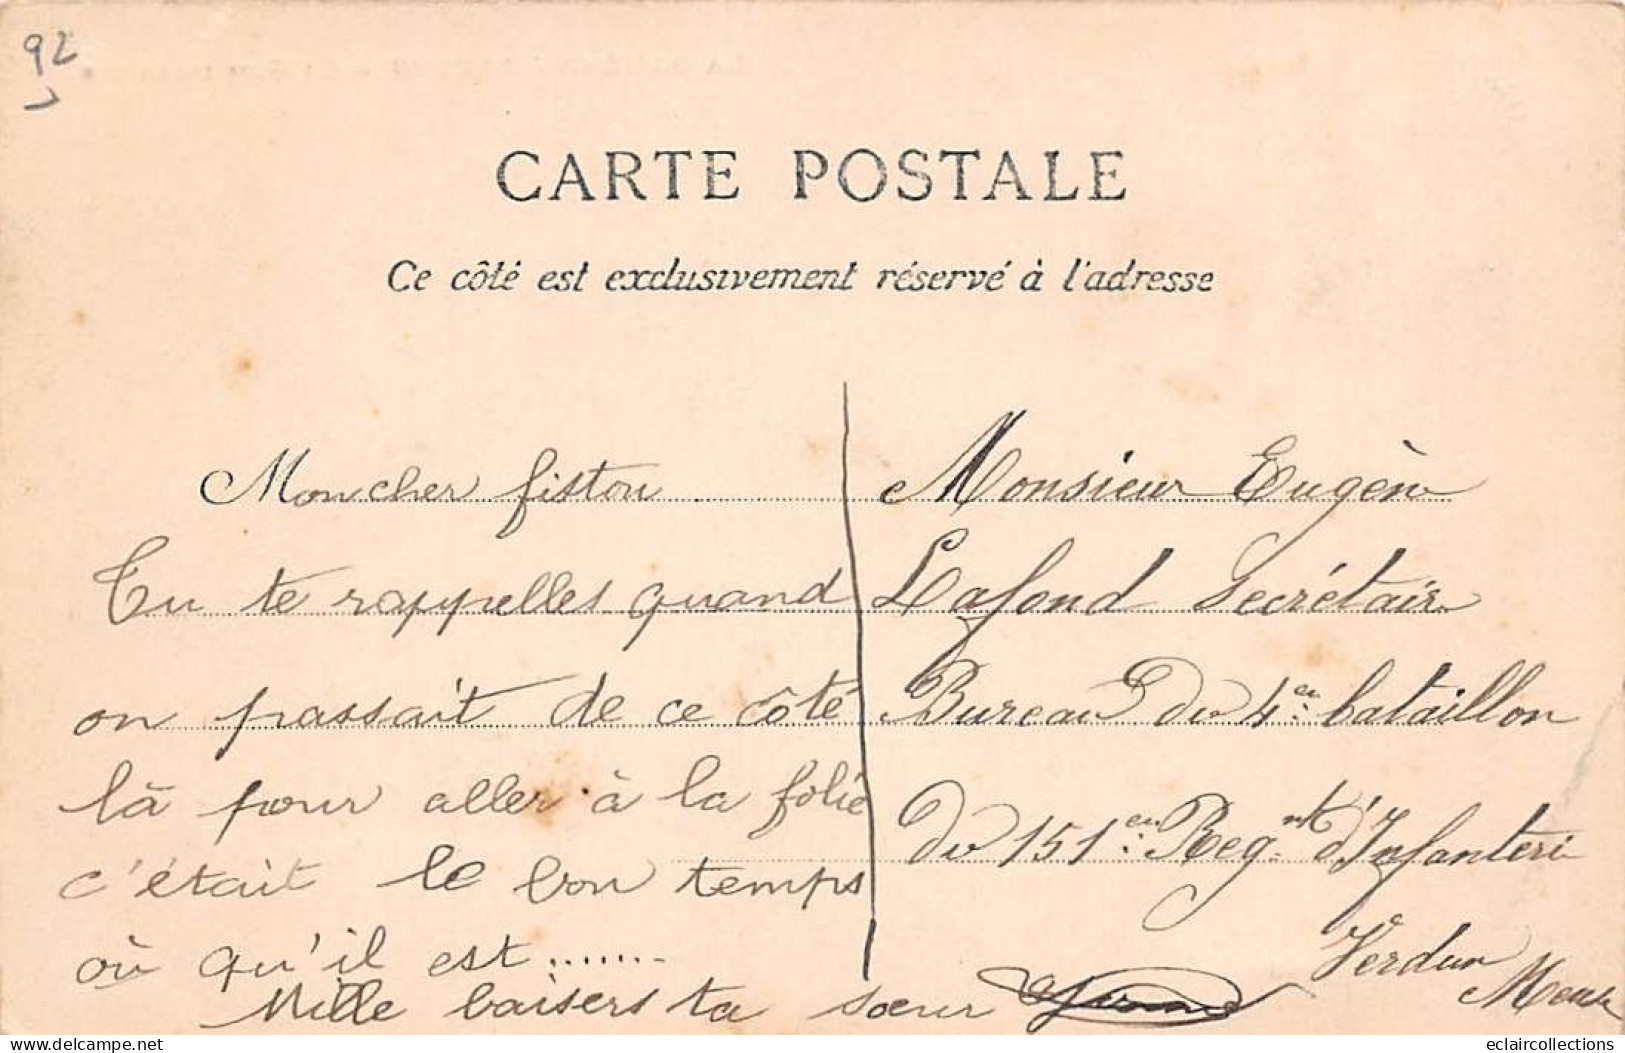 92
CARTE POSTALE
Ce côté est exclusivement réservé à l'adresse
Mon cher fiston
Tu te rappelles quand
on passait de ce côté
là pour aller à la folie
c'était le bon temps
où qu'il est.......
Mille baisers ta sœur
Monsieur Eugène
Lafond Secrétaire
Bureau du 4e bataillon
du 151e Regnt d'Infanterie
Verdun
Meuse
delcampe.net
eclaircollections